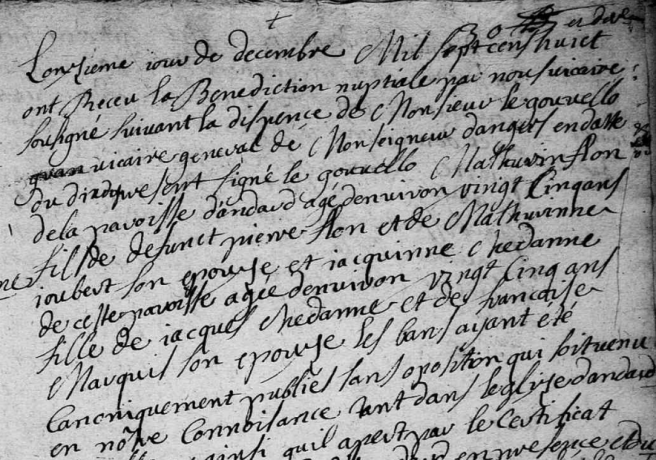 Lonzieme iour de decembre Mil sept cens huict
ont Receu la Benediction nuptiale par nous vicaire
sousigné suivant la dispence de Monsieur le gouvello
vicaire general de Monseigneur dangers en datte
du dix du present signé le gouvello Mathurin flon
de la paroisse dandard agé denviron vingt Cinq ans
fils de defunct pierre flon et de Mathurinne
ioubert son epouse et iacquinne Chedanne
de ceste paroisse agée denviron vingt Cinq ans
fille de iacques Chedanne et de francoise
Marquis son epouse les bans aiant eté
Canoniquement publiés sans oposition qui soit venu
en nôtre Connoisance tant dans leglise dandard
ainsi quil apert par le Certificat
en presence et du